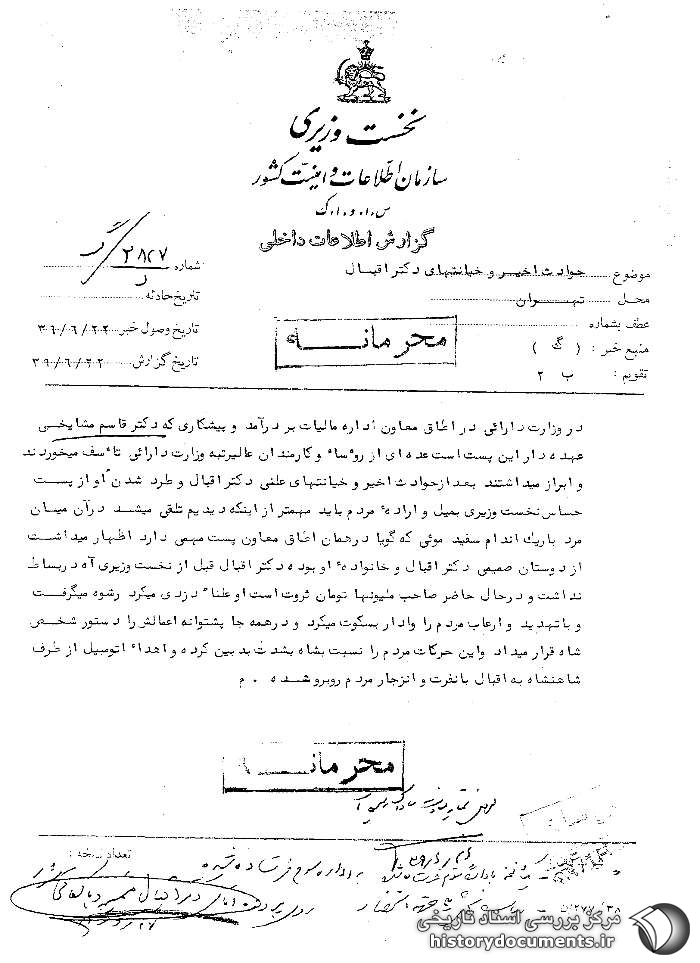 نخست وزیری
سازمان اطلاعات و امنیت کشور
س.ا.و.ا.ک
گزارش اطلاعات داخلی
موضوع حوادث اخیر و خیانتهای دکتر اقبال
شماره ۲۸۲۷
محل تهران
تاریخ حادثه
عطف بشماره
تاریخ وصول خبر ۳۹/۶/۲۲
منبع خبر : ( گ )
تاریخ گزارش ۳۹/۶/۲۲
تقویم : ب ۲
محرمانه
در وزارت دارائی در اطاق معاون اداره مالیات بر درآمد و پیشکاری که دکتر قاسم مشایخی
عهده دار این پست است عده ای از روٴساٴ و کارمندان عالیرتبه وزارت دارائی تاٴسف میخوردند
و ابراز میداشتند بعد از حوادث اخیر و خیانتهای علنی دکتر اقبال و طرد شدن او از پست
حساس نخست وزیری بمیل و ارادهٴ مردم باید مهمتر از اینکه دیدیم تلقی میشد در آن میان
مرد باریک اندام سفید موئی که گویا در همان اطاق معاون پست مهمی دارد اظهار میداشت
از دوستان صمیمی دکتر اقبال و خانوادهٴ او بوده دکتر اقبال قبل از نخست وزیری آه در بساط
نداشت و در حال حاضر صاحب ملیونها تومان ثروت است او علناٴ دزدی میکرد رشوه میگرفت
و با تهدید و ارعاب مردم را وادار بسکوت میکرد و در همه جا پشتوانه اعمالش را دستور شخص
شاه قرار میداد واین حرکات مردم را نسبت بشاه بشدت بدبین کرده و اهداٴ اتومبیل از طرف
شاهنشاه به اقبال با نفرت و انزجار مردم روبرو شده . م
محرمانه
تعداد نسخه :
به اداره سوم فرستاده شود
مرکز بررسی اسناد تاریخی
historydocuments.ir